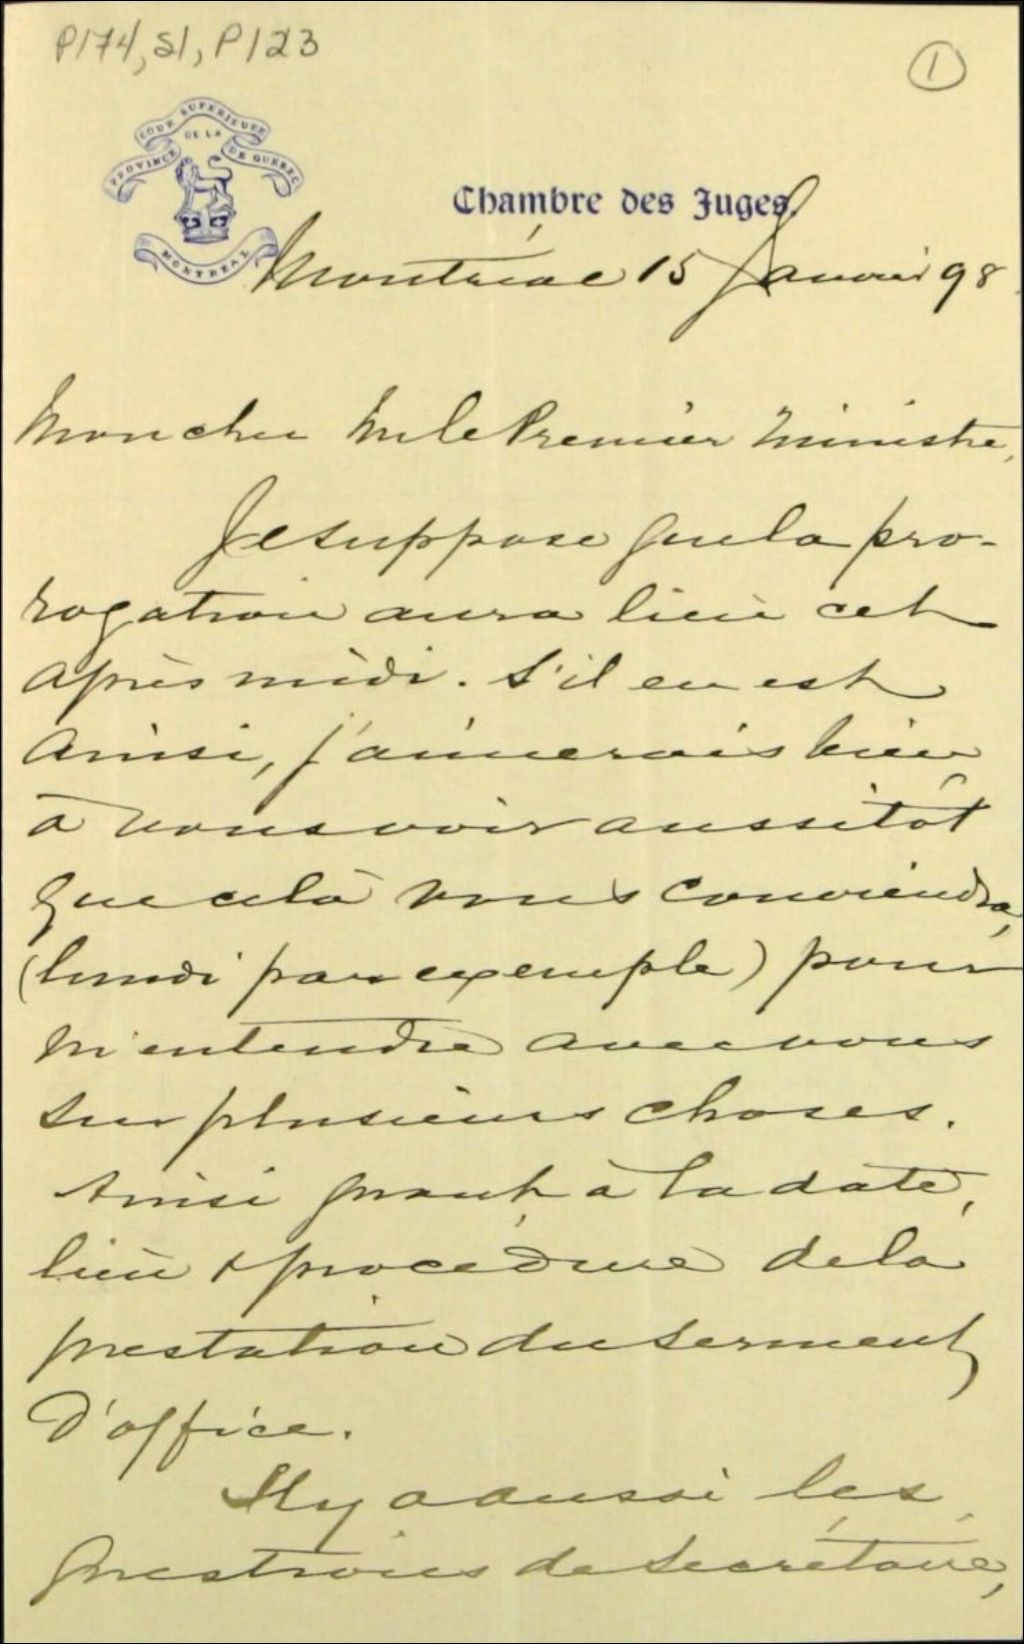 P174, S1, P123
1
COUR SUPERIEURE
DE LA
PROVINCE DE QUEBEC
MONTREAL
Chambre des Juges.
Montréal 15 Janvier 98
Mon cher M le Premier Ministre,
Je suppose que la pro-
rogation aura lieu cet
après midi. S'il en est
ainsi, j'aimerais bien
à vous voir aussitôt
que cela vous conviendra,
(lundi par exemple) pour
m'entendre avec vous
sur plusieurs choses.
Ainsi quant à la date,
lieu & procédure de la
prestation du serment
d'office.
Il y a aussi les
questions de secrétaire,